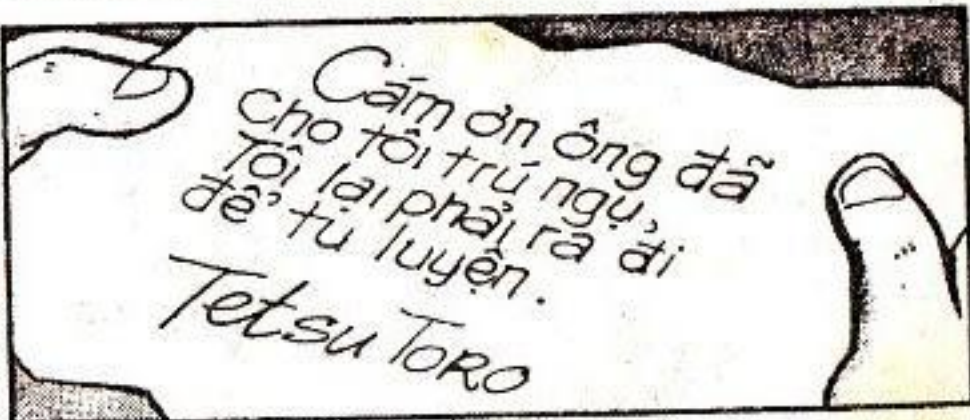 Cám ơn ông đã
cho tôi trú ngụ,
Tôi lại phải ra đi
để tụ luyện.
Tetsu TORO